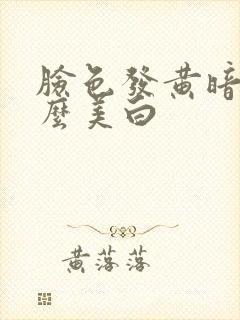 臉色發黃暗
麼美白
黃落落